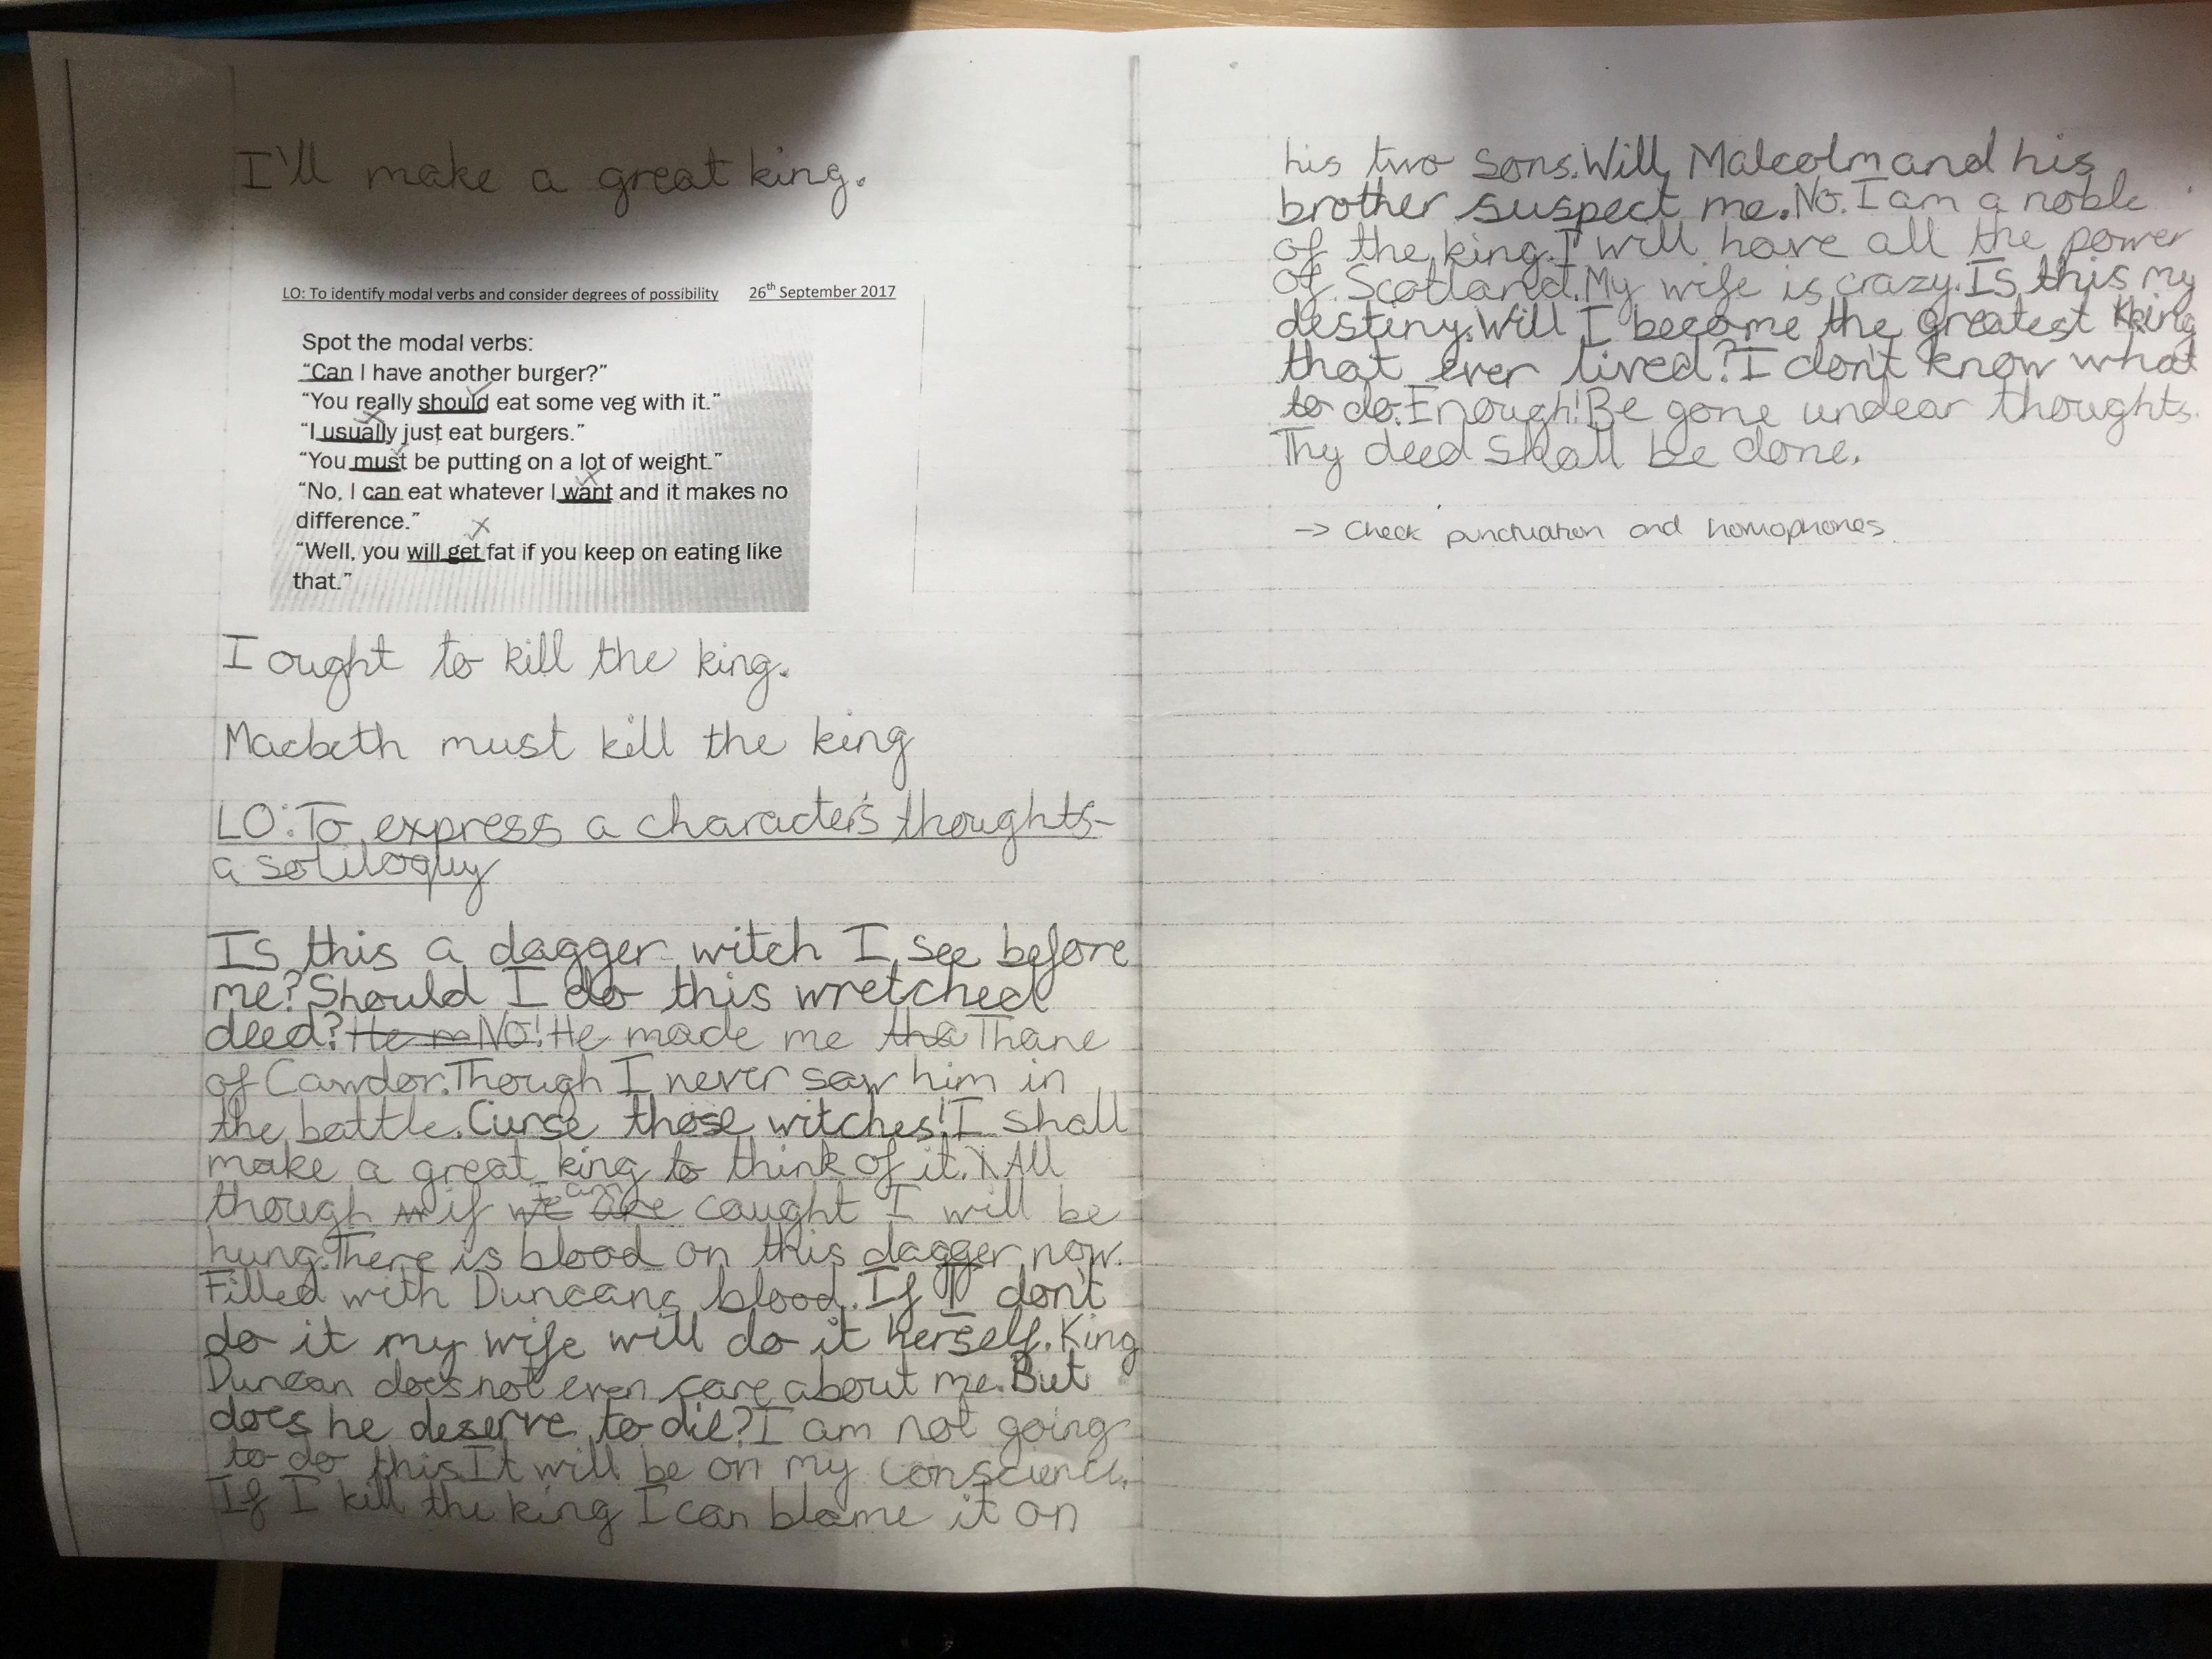 I'll make a great king.
LO: To identify modal verbs and consider degrees of possibility 26th September 2017
Spot the modal verbs:
"Can I have another burger?"
"You really should eat some veg with it."
"I usually just eat burgers."
"You must be putting on a lot of weight."
"No, I can eat whatever I want and it makes no
difference."
"Well, you will get fat if you keep on eating like
that."
I ought to kill the king.
Macbeth must kill the king
LO: To express a character's thoughts-
a soliloquy
Is this a dagger witch I see before
me? Should I do this wretched
deed? He m NO! He made me tha Thane
of Cawdor. Though I never saw him in
the battle. Curse those witches! I shall
make a great king to think of it. All
though if we are I am caught I will be
hung. There is blood on this dagger now.
Filled with Duncans blood. If I don't
do it my wife will do it herself. King
Duncan does not even care about me. But
does he deserve to die? I am not going
to do this. It will be on my conscience.
If I kill the king I can blame it on
his two sons. Will Malcolm and his
brother suspect me. No. I am a noble
of the king. I will have all the power
of Scotland. My wife is crazy. Is this my
destiny. Will I become the greatest king
that ever lived? I don't know what
to do. Enough! Be gone undear thoughts.
Thy deed shall be done.
-> Check punctuation and homophones.